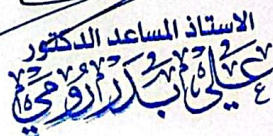 الاستاذ المساعد الدكتور
علي بدر رومي